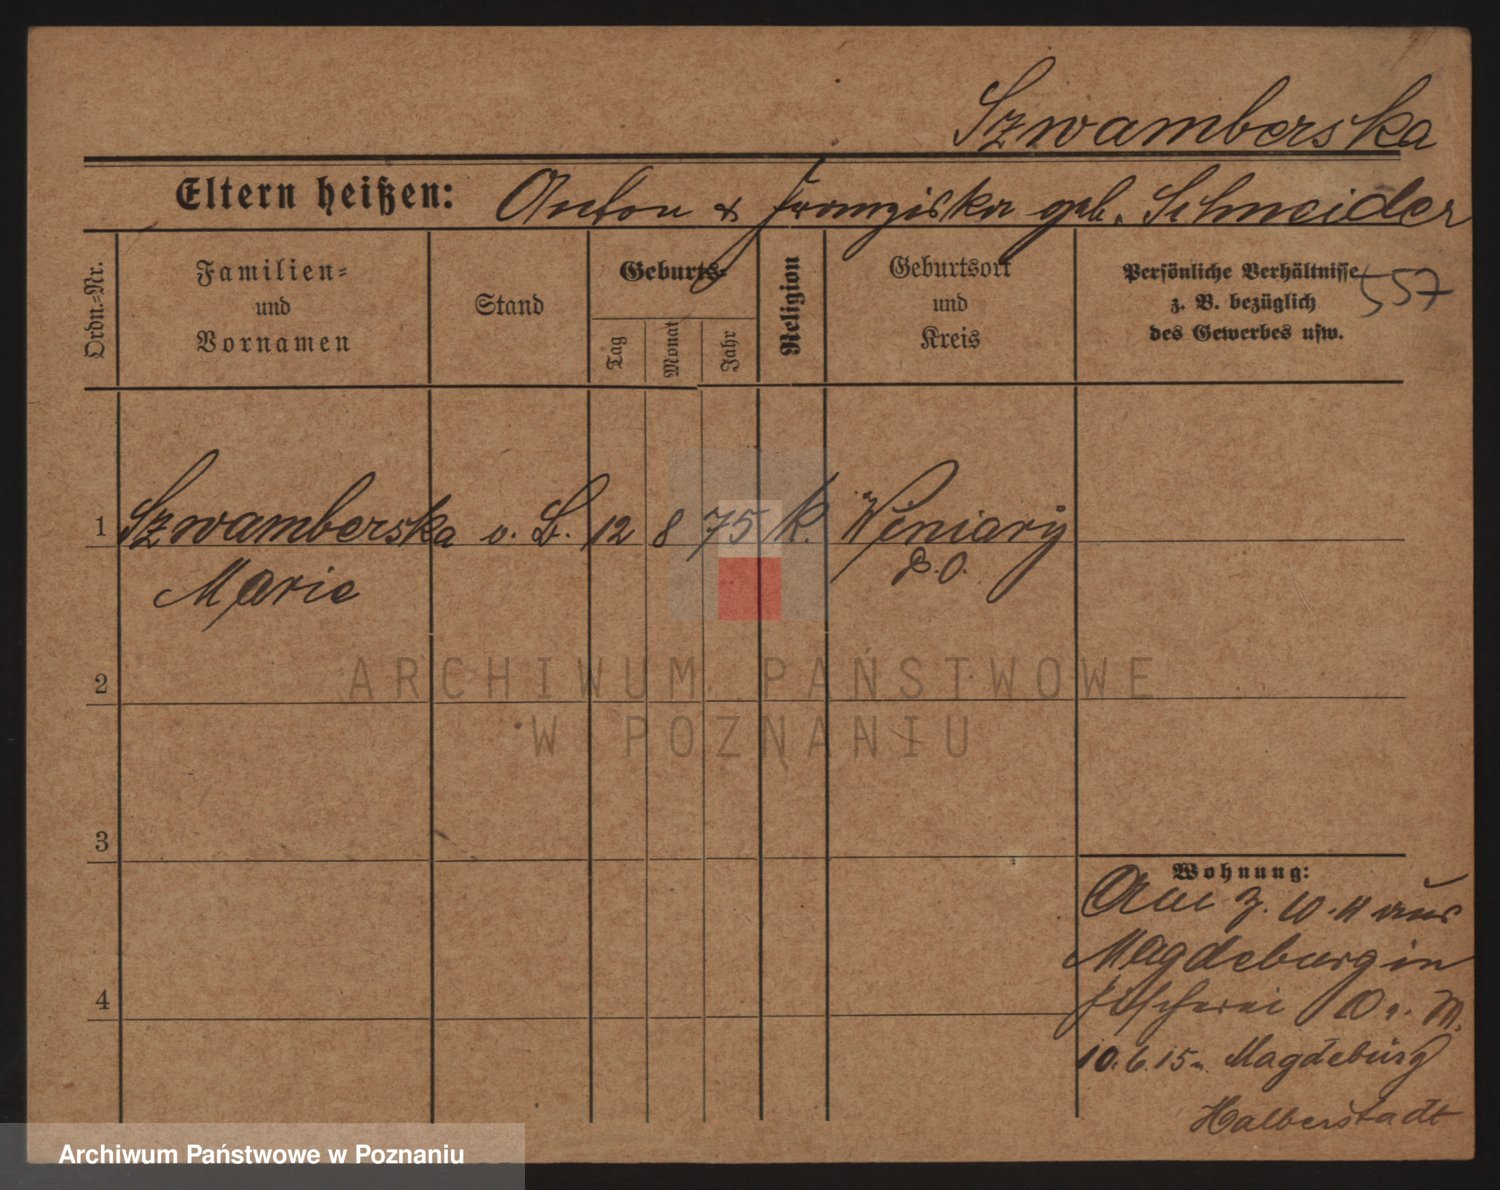 Szwamberska
Eltern heißen: Anton & Franziska geb. Schneider
Ordn.=Nr.
Familien=
und
Vornamen
Stand
Geburts=
Tag
Monat
Jahr
Religion
Geburtsort
und
Kreis
Persönliche Verhältnisse
z. B. bezüglich
des Gewerbes usw.
557
1 Szwamberska o. B. 12 8 75 k. Winiary
Marie P. O.
2
ARCHIWUM PAŃSTWOWE
W POZNANIU
3
Wohnung:
10. 11 aus
Magdeburg in
Fischerei
10. 6. 15 n. Magdeburg
Halberstadt
4
Archiwum Państwowe w Poznaniu